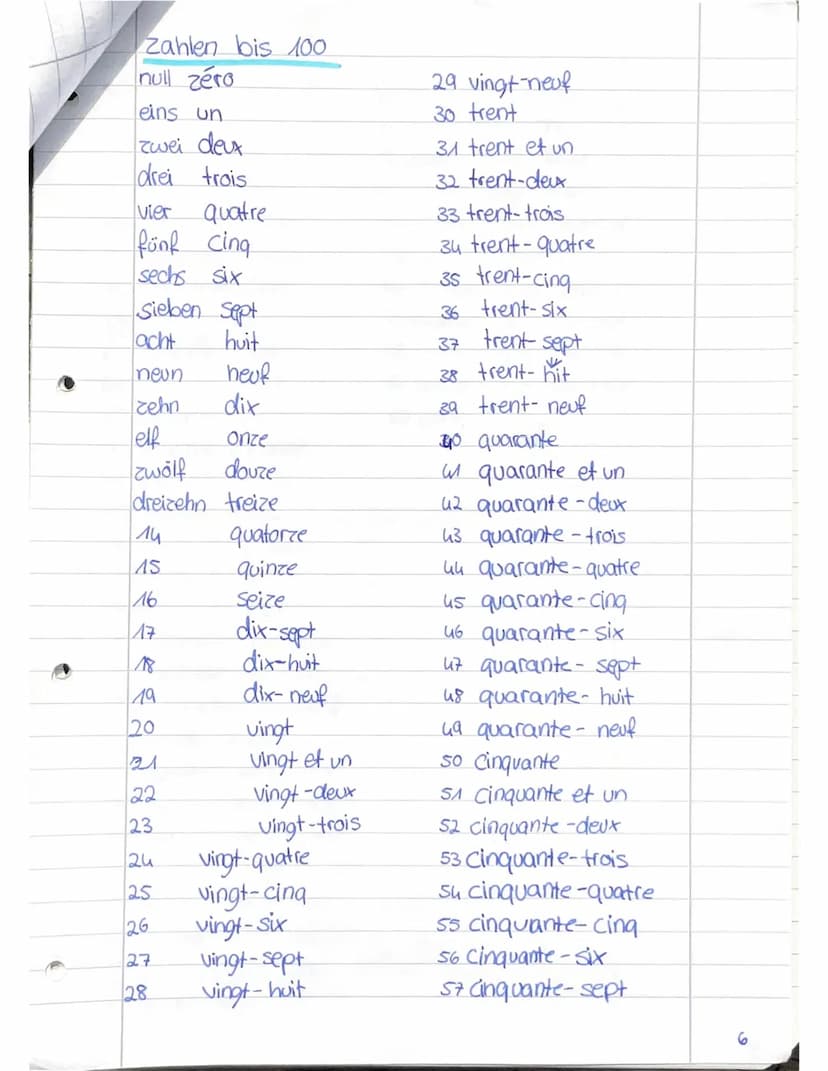 zahlen bis 100
null zéro
eins un
zwei deux
drei trois
vier quatre
fünf cinq
sechs six
sieben sept
acht huit
neun neuf
zehn dix
elf onze
zwölf douze
dreizehn treize
14 quatorze
15 quinze
16 seize
17 dix-sept
18 dix-huit
19 dix-neuf
20 vingt
21 vingt et un
22 vingt-deux
23 vingt-trois
24 vingt-quatre
25 vingt-cinq
26 vingt-six
27 vingt-sept
28 vingt-huit
29 vingt-neuf
30 trent
31 trent et un
32 trent-deux
33 trent-trois
34 trent-quatre
35 trent-cinq
36 trent-six
37 trent-sept
38 trent-hit
39 trent-neuf
40 quarante
41 quarante et un
42 quarante-deux
43 quarante-trois
44 quarante-quatre
45 quarante-cinq
46 quarante-six
47 quarante-sept
48 quarante-huit
49 quarante-neuf
50 cinquante
51 cinquante et un
52 cinquante-deux
53 cinquante-trois
54 cinquante-quatre
55 cinquante-cinq
56 cinquante-six
57 cinquante-sept
6